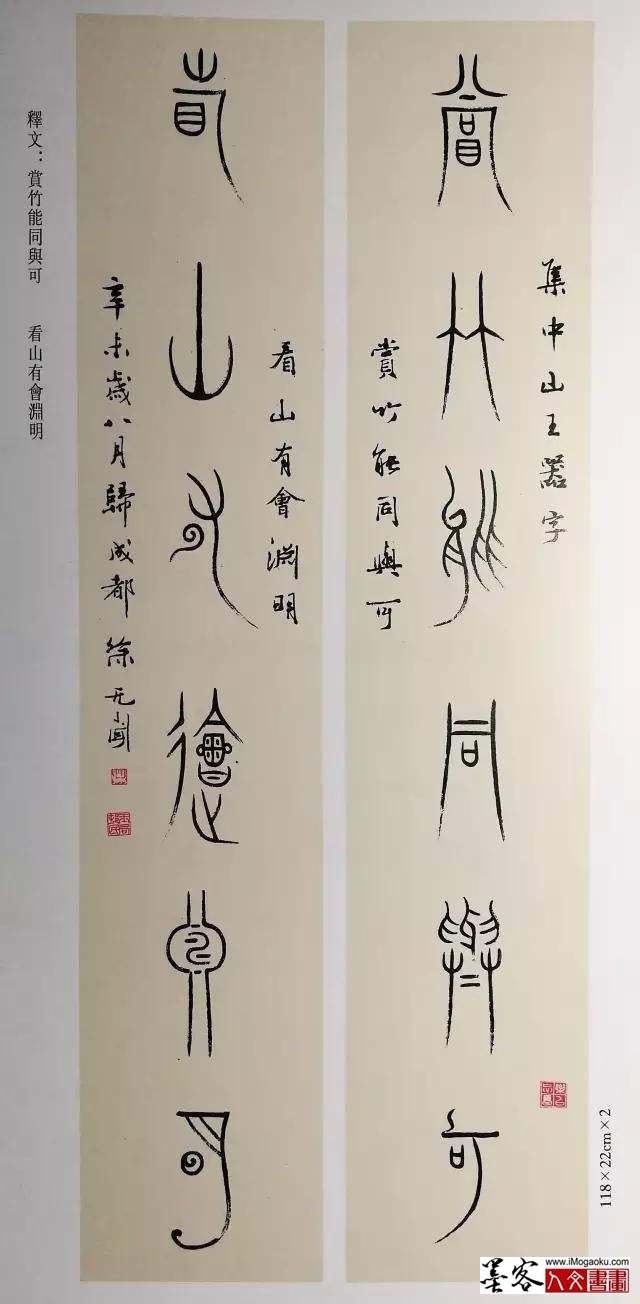 賞竹能同與可
集中山王器字
賞竹能同與可
看山有會淵明
看山有會淵明
辛未歲八月歸成都 徐无聞
釋文：賞竹能同與可 看山有會淵明
118×22cm×2
www.iMogaoku.com
墨客 人文書畫